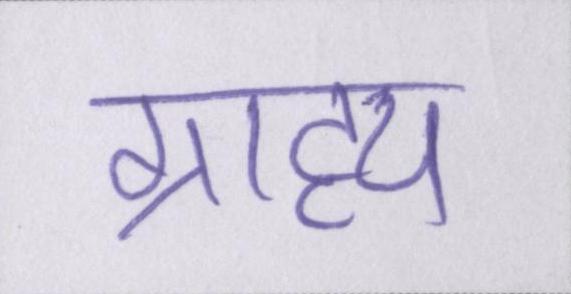 ग्राह्य